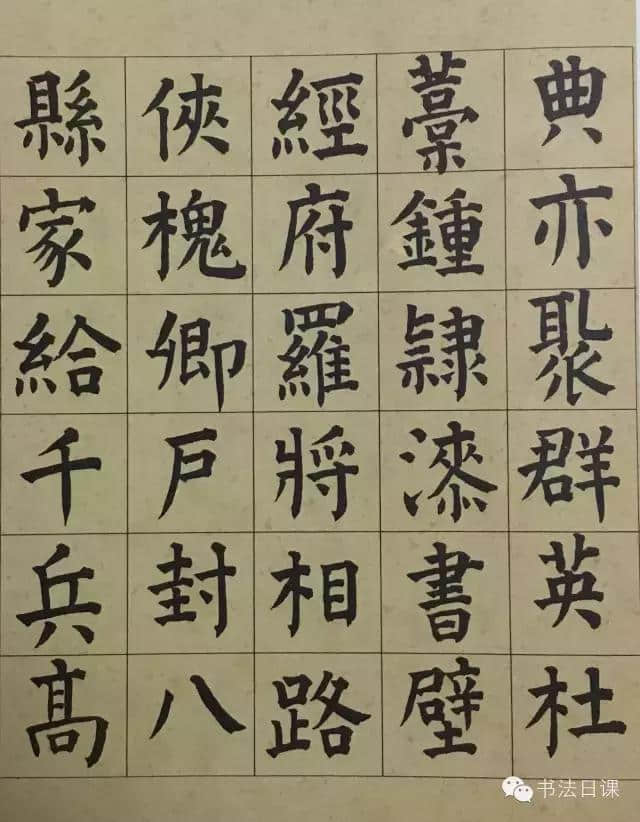 典亦聚群英杜
藁鍾隸漆書壁
經府羅將相路
俠槐卿戶封八
縣家給千兵高
书法日课